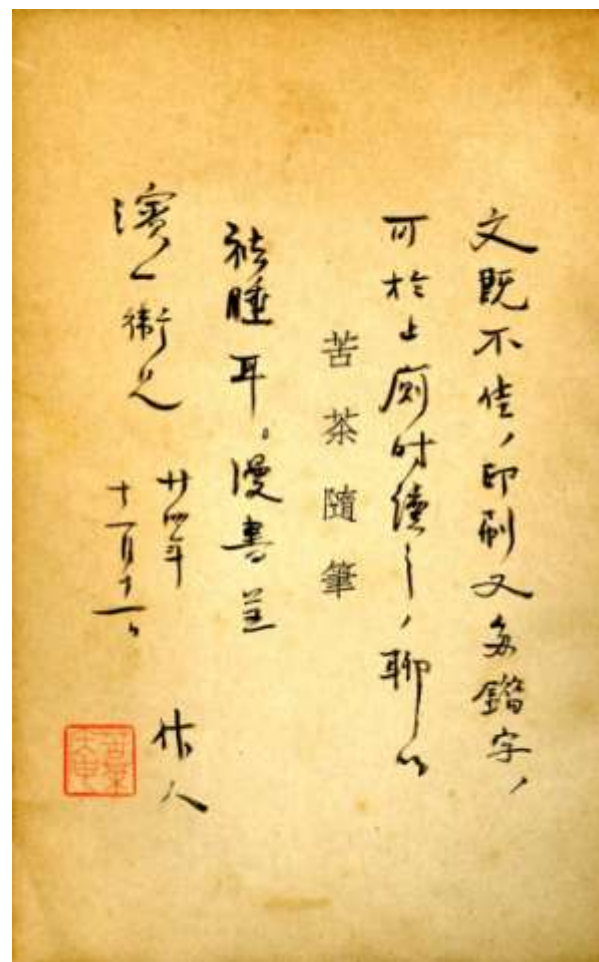 文既不佳，印刷又多錯字，
可於上廁时讀之，聊以
苦茶隨筆
祛睡耳。漫書呈
濱一衛兄
廿四年
十一月十一日
作人